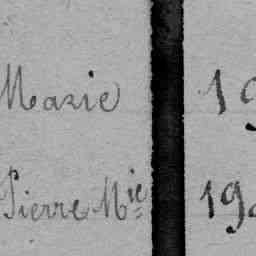 Marie 19
Pierre Mie 19